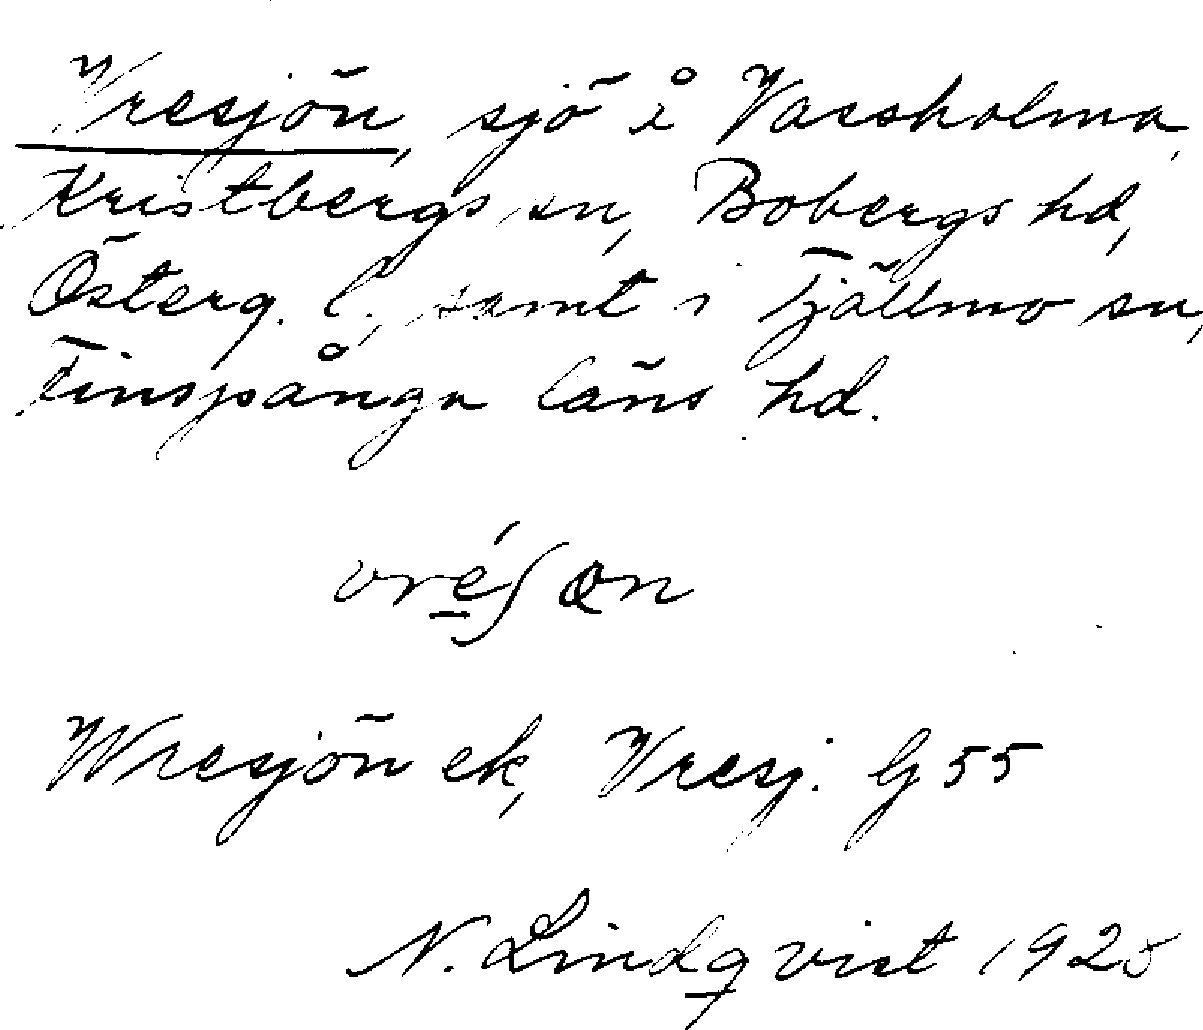 Vresjön, sjö i Vassholma,
Kristbergs sn, Bobergs hd,
Österg. l., samt i Tjällmo sn,
Finspånga läns hd.
Wresjön ek, Vresj. G 55
N. Lindqvist 1925